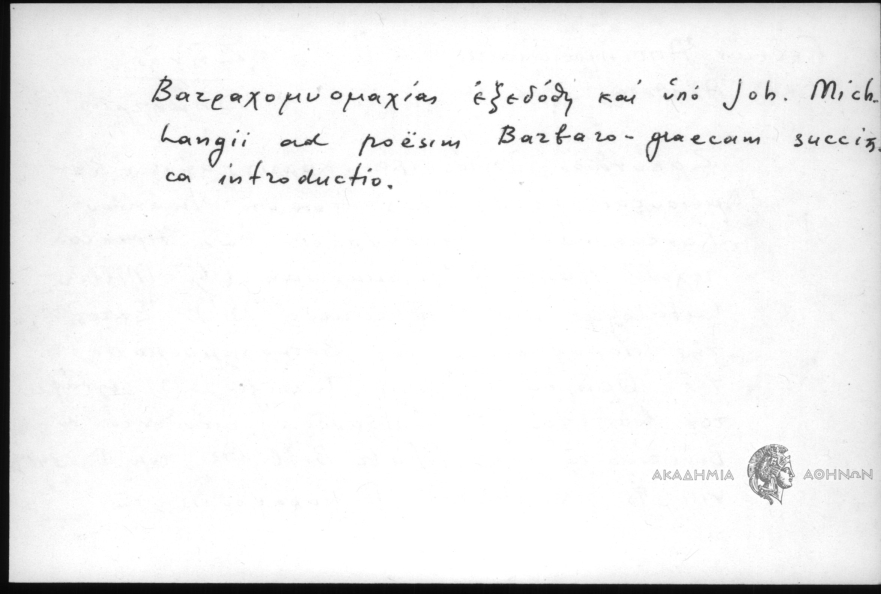 Βατραχομυομαχίας ἐξεδόθη καί ὑπό Joh. Mich.
Langii ad poësim Barbaro-graecam succin
ca introductio.
ΑΚΑΔΗΜΙΑ ΑΘΗΝΩΝ